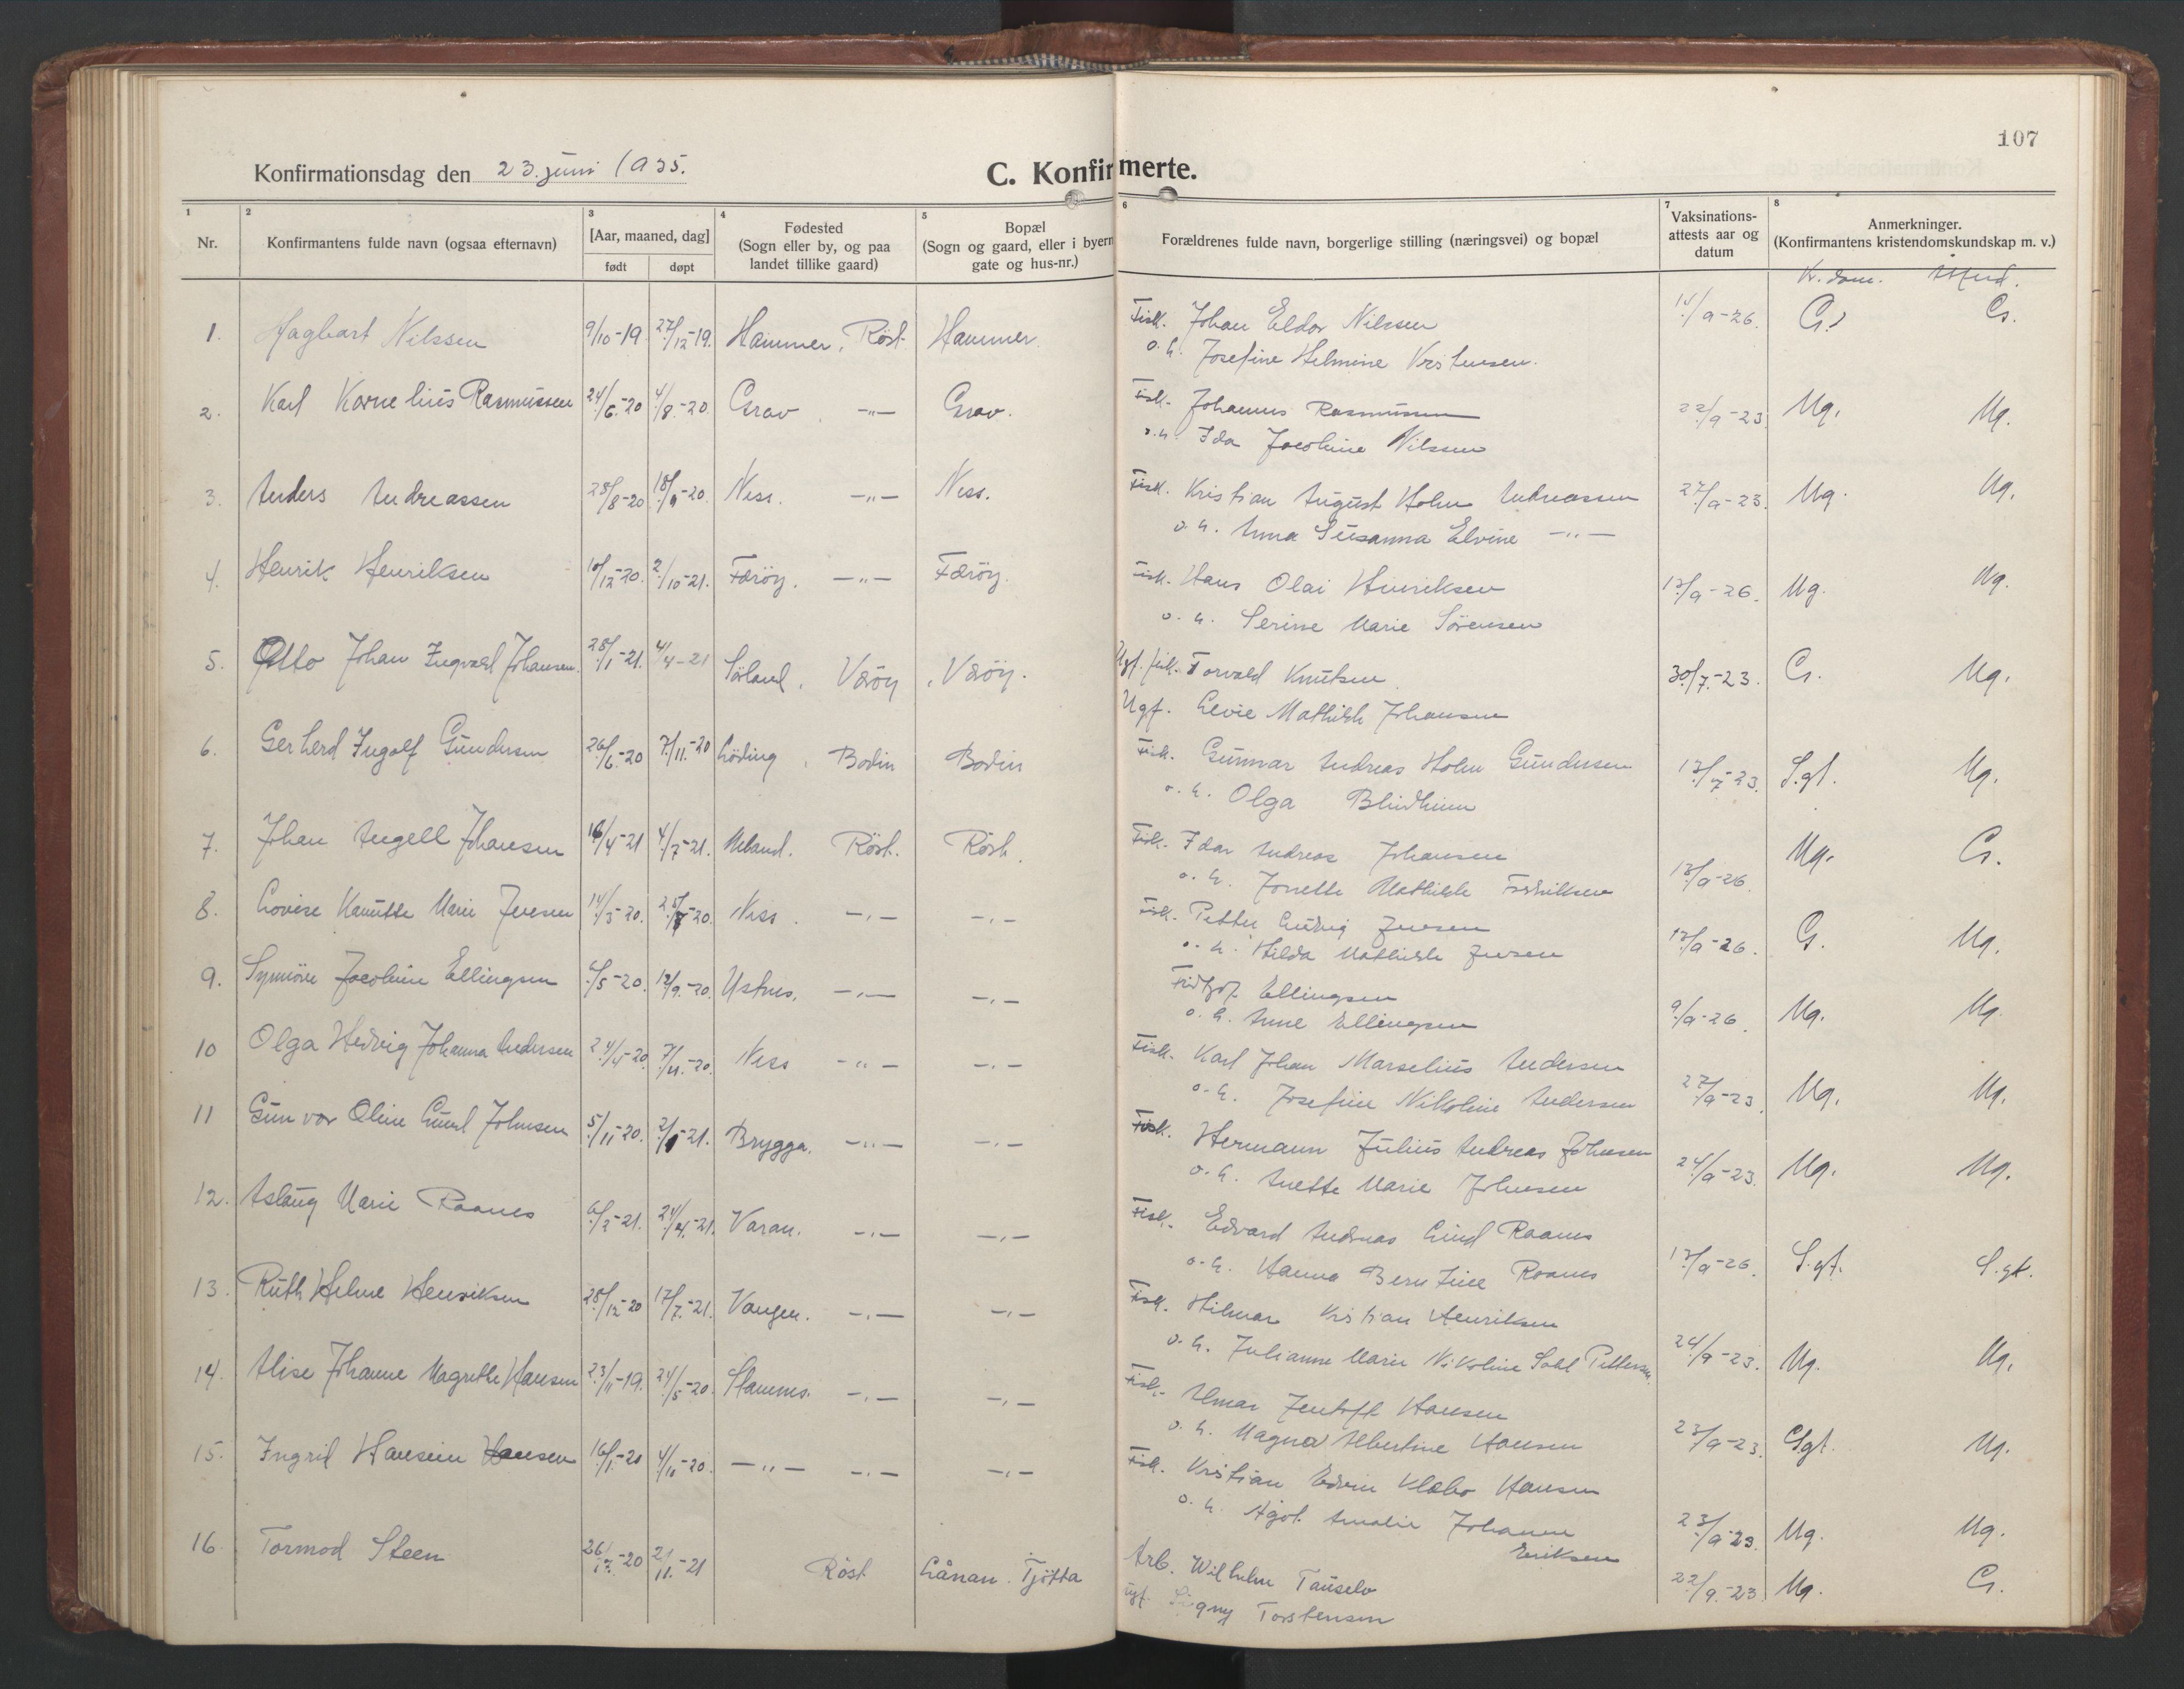 107
Konfirmationsdag den 23. juni 1935.
C. Konfirmerte.
1 2 3 4 5 6 7 8
Nr. Konfirmantens fulde navn (ogsaa efternavn) [Aar, maaned, dag] født døpt Fødested (Sogn eller by, og paa landet tillike gaard) Bopæl (Sogn og gaard, eller i byern gate og hus-nr.) Forældrenes fulde navn, borgerlige stilling (næringsvei) og bopæl Vaksinations-attests aar og datum Anmerkninger. (Konfirmantens kristendomskundskap m. v.)
Kr. dom.
1. Hagbart Nilssen 9/10-19 27/12-19. Hammer, Röst Hammer. Fisk. Johan Eldor Nilssen 14/9-26. G. G.
o. h. Josefine Helmine Kristensen.
2. Karl Kornelius Rasmussen 24/6.-20 4/8.-20. Grav. -"- Grav. Fisk. Johannes Rasmussen 22/9-23. Mg. Mg.
o. h. Ida Jacobine Nilssen
3. Anders Andreassen 28/8-20 -20. Ness. -"- Ness. Fisk. Kristian August Holm Andreassen 27/9-23. Mg. Mg.
o. h. Anna Susanna Elvine -"-
4. Henrik Henriksen 10/12-20. 2/10-21. Færöy. -"- Færöy. Fisk. Hans Olai Henriksen 13/9-26. Mg. Mg.
o. h. Serine Marie Sörensen
5. Otto Johan Ingvald Johansen. 28/1-21. 4/4-21 Sörland, Væröy, Væröy. Ugf. fisk. Torvald Knutsen 30/7.-23. G. Mg.
Ugf. Levie Mathilde Johansen
6. Gerherd Ingolf Gundersen 26/6.-20 7/11.-20 Löding, Bodin Bodin Fisk. Gunnar Andreas Holm Gundersen 13/7-23. S.gt. Mg.
o. h. Olga Blindheim
7. Johan Angell Johansen 16/4-21 4/7-21. Röst. Röst. Fisk. Idar Andreas Johansen 13/9-26. Mg. G.
o. h. Jonette Mathilde Fredriksen
8. Lovise Kanutte Marie Jensen 14/3-20. -20. Ness. -"- -"- Fisk. Petter Ludvig Jensen 13/9-26. G. Mg.
o. h. Hilda Mathilde Jensen
9. Synnöve Jacobine Ellingsen /5-20. 12/9.-20. Ystnes. -"- -"- Fridtjof Ellingsen 9/9-26. Mg. Mg.
o. h. Anne Ellingsen
10 Olga Hedvig Johanna Andersen 24/4-20 7/11.-20. Ness -"- -"- Fisk. Karl Johan Marselius Andersen 27/9-23. Mg. Mg.
o. h. Josefine Nikoline Andersen
11 Gunvor Oline Gunel Johnsen 5/11-20. 2/ -21. Brygga. -"- -"- Fisk. Hermann Julius Andreas Johnsen 24/9-23. Mg. Mg.
o. h. Anette Marie Johnsen
12. Aslaug Marie Raanes 6/2-21. 24/4.-21. Varan. -"- -"- Fisk. Edvard Andreas Lind Raanes 13/9-26. S.gt. S.gt.
o. h. Hanna Berntine Raanes
13. Ruth Helene Henriksen 28/12-20 17/7.-21. Vangen. -"- -"- Fisk. Hilmar Kristian Henriksen 24/9-23. Mg. Mg.
o. h. Julianne Marie Nikoline Dahl Pettersen.
14. Alise Johanne Magrethe Hansen 23/11-19. 24/5-20. Stamnes. -"- -"- Fisk. Almar Jentoft Hansen 23/9-23. S.gt. Mg.
o. h. Magna Albertine Hansen
15. Ingrid Hansine Hansen 16/1.-20 4/11-20. -"- -"- -"- Fisk. Kristian Edvin Klæbo Hansen 23/9-23. Mg. Mg.
o. h. Agot Amalie Johanne Eriksen
16. Tormod Steen 26/12.-20 2/11.-21 Röst Lånan. Tjötta Arb. Wilhelm Tauselv 22/9.-23 Mg. G.
ugf. Signy Torstensen